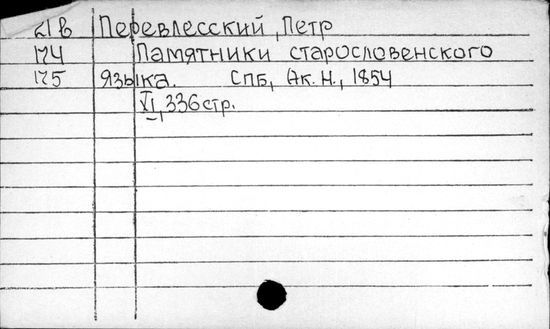 21в Перевлесский, Петр
174 Памятники старословенского
175 языка. СПБ, Ак. Н., 1854
VI, 336 стр.